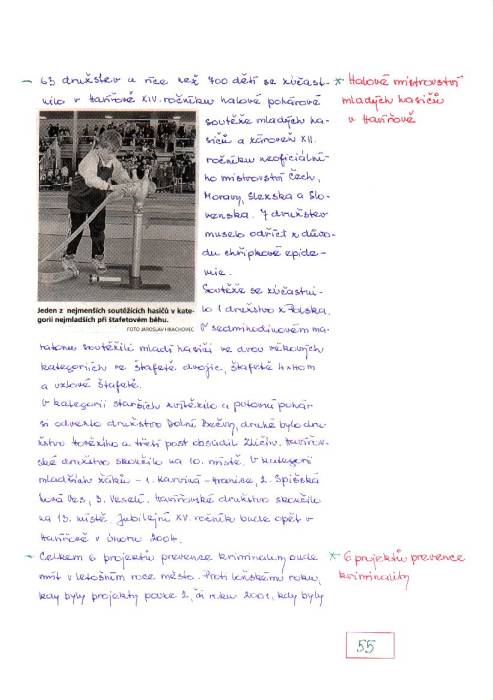 - 63 družstev a více než 700 dětí se zúčast-
nilo v Havířově XIV. ročníku halové pohárové
soutěže mladých ha-
sičů a zároveň XII.
ročníku neoficiální-
ho mistrovství Čech,
Moravy, Slezska a Slo-
venska. 7 družstev
muselo odříct z důvo-
du chřipkové epide-
mie.
Soutěže se zúčastni-
lo 1 družstvo z Polska.
V sedmihodinovém ma-
ratonu soutěžili mladí hasiči ve dvou věkových
kategoriích ve štafetě dvojic, štafetě 4x40m
a uzlové štafetě.
V kategorii starších zvítězilo a putovní pohár
si odvezlo družstvo Dolní Bečvy, druhé bylo dru-
žstvo
a třetí post obsadil Zličín. Havířov-
ské družstvo skončilo na 10. místě. V kategorii
mladších žáků - 1. Karviná - Hranice, 2. Spišská
Nová Ves, 3. Veselí. Havířovské družstvo skončilo
na 13. místě. Jubilejní XV. ročník bude opět v
Havířově v únoru 2004.
- Celkem 6 projektů prevence kriminality bude
mít v letošním roce město. Proti loňskému roku,
kdy byly projekty pouze 2, či roku 2001, kdy byly
* Halové mistrovství
mladých hasičů
v Havířově
* 6 projektů prevence
kriminality
Jeden z nejmenších soutěžících hasičů v kate-
gorii nejmladších při štafetovém běhu.
FOTO JAROSLAV HRACHOVEC
55